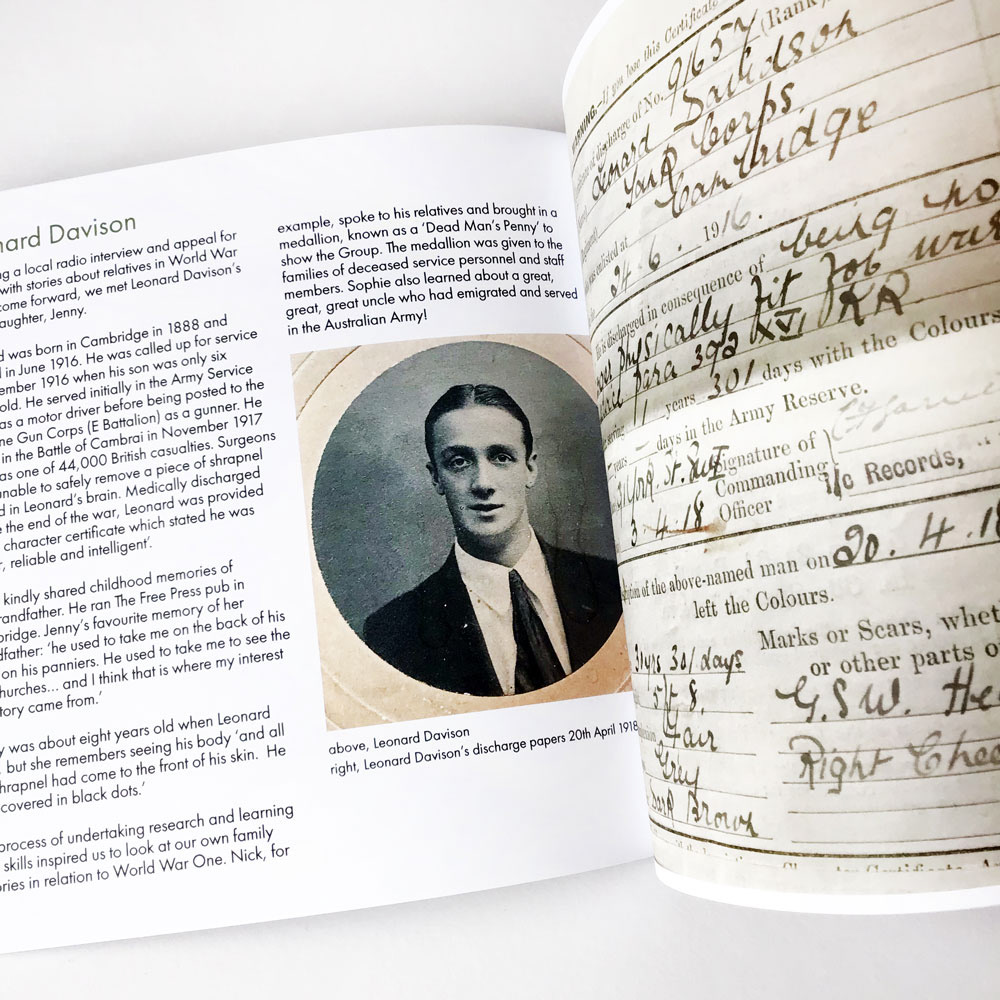 nard Davison
ng a local radio interview and appeal for
with stories about relatives in World War
come forward, we met Leonard Davison's
aughter, Jenny.
d was born in Cambridge in 1888 and
d in June 1916. He was called up for service
ember 1916 when his son was only six
old. He served initially in the Army Service
as a motor driver before being posted to the
ne Gun Corps (E Battalion) as a gunner. He
in the Battle of Cambrai in November 1917
as one of 44,000 British casualties. Surgeons
unable to safely remove a piece of shrapnel
d in Leonard's brain. Medically discharged
e the end of the war, Leonard was provided
character certificate which stated he was
r, reliable and intelligent'.
kindly shared childhood memories of
randfather. He ran The Free Press pub in
bridge. Jenny's favourite memory of her
dfather: 'he used to take me on the back of his
on his panniers. He used to take me to see the
hurches... and I think that is where my interest
tory came from.'
y was about eight years old when Leonard
, but she remembers seeing his body 'and all
hrapnel had come to the front of his skin. He
covered in black dots.'
process of undertaking research and learning
skills inspired us to look at our own family
ories in relation to World War One. Nick, for
example, spoke to his relatives and brought in a
medallion, known as a 'Dead Man's Penny' to
show the Group. The medallion was given to the
families of deceased service personnel and staff
members. Sophie also learned about a great,
great, great uncle who had emigrated and served
in the Australian Army!
above, Leonard Davison
right, Leonard Davison's discharge papers 20th April 1918
WARNING.—If you lose this Certificate
discharge of No. 91657 (Rank)
Leonard Davidson
Tank Corps.
was enlisted at Cambridge
24.6. 1916.
He is discharged in consequence of being no
physically fit for war
para 392 XVI KR.
years 301 days with the Colours
years — days in the Army Reserve.
Signature of
Commanding
Officer
i/c Records,
3.4.18
of the above-named man on 20.4.1
left the Colours.
Marks or Scars, whet
or other parts o
31yrs 301 days
5ft 8.
G.S.W. He
Fair
Right Chee
Grey
Dark Brown